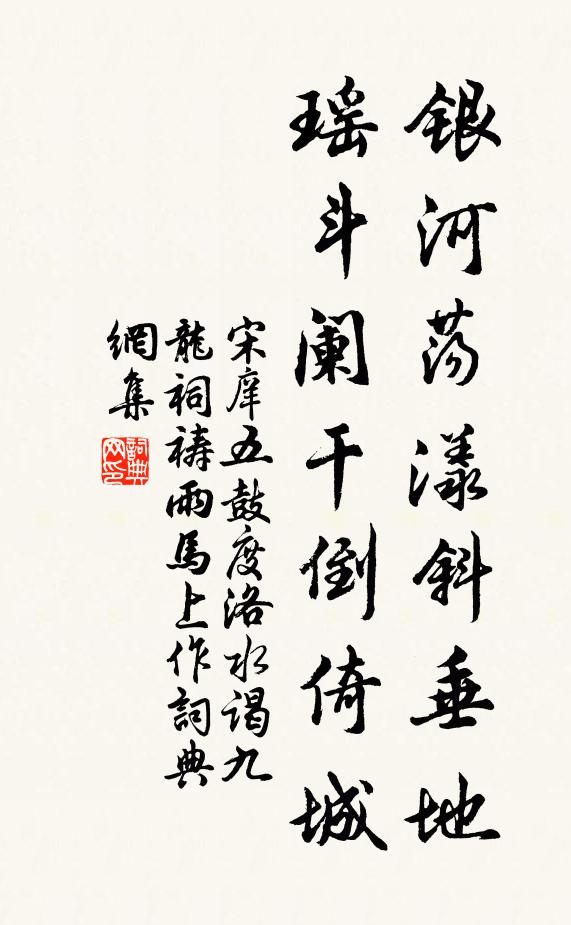 銀河荡漾斜垂地
瑶斗阑干倒倚城
宋庠五鼓度洛水谒九
龍祠祷雨馬上作詞典
網集
詞典
网印